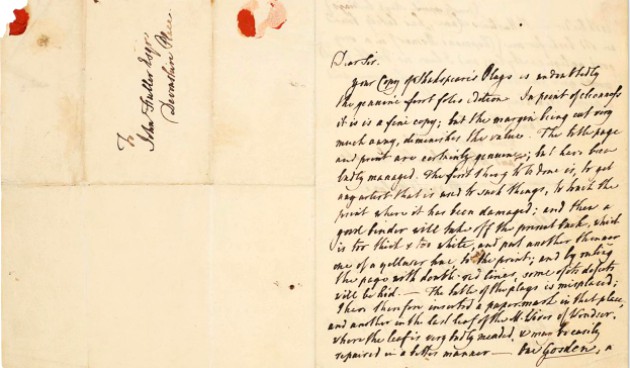 To
John Fuller Esqr
Devonshire Place.
Dear Sir.
your Copy of Shakspeare's Plays is undoubtedly
the genuine first folio edition. In point of cleanness
it is a fine copy; but the margin being cut very
much away, diminishes the value. The title page
and print are certainly genuine; but have been
badly managed. The first thing to be done is, to get
any artist that is used to such things, to touch the
print where it has been damaged; and then a
good binder will take off the present back, which
is too thick & too white, and put another thinner
one of a yellower hue to the print; and by ruling
the page with double red lines, some of its defects
will be hid. — The table of the plays is misplaced;
I have therefore inserted a paper mark in that place,
and another in the last leaf of the M. Wives of Windsor,
where the leaf is very badly mended, & may be easily
repaired in a better manner — One Gosden, a